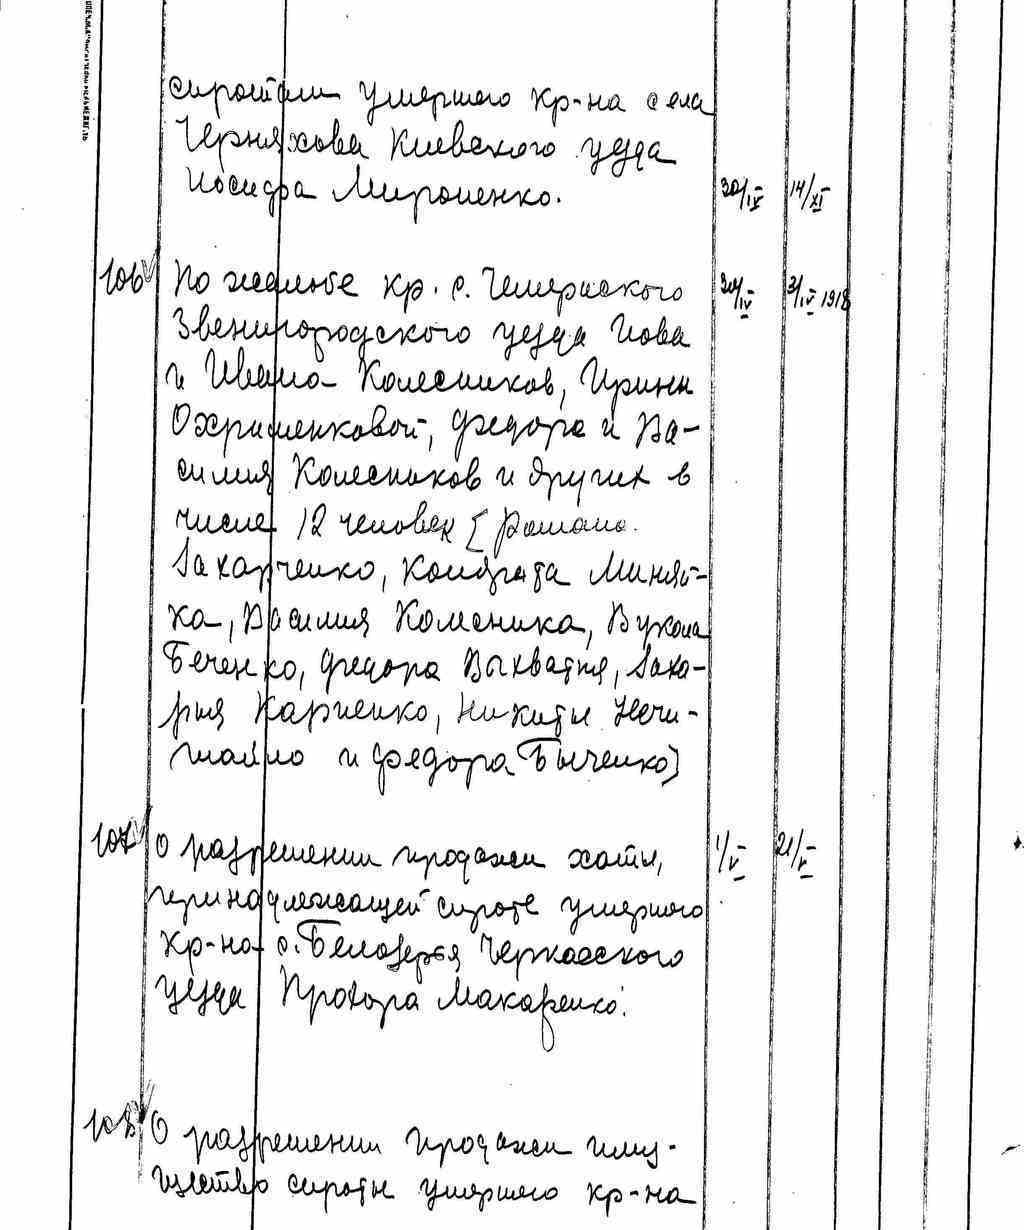 сиротам умершего кр-на села
Черняхова Киевского уезда
Иосифа Мироненко. 30/IV 14/XI
106 По жалобе кр. с. Чемериского 30/IV 3/IV 1918
Звенигородского уезда Иова
и Ивана Колесников, Ирины
Охрименковой, Федора и Ва-
силия Колесников и других в
числе 12 человек [Романа
Захарченко, Кондрата Миняй-
ка, Василия Колесника, Вукола
Беченко, Федора Выхватня, Заха-
рия Карпенко, Никиты Нечи-
тайло и Федора Быченко]
107 О разрешении продажи хаты, 1/V 21/V
принадлежащей сироте умершего
кр-на с. Белозерья Черкасского
уезда Прохора Макаренко.
108 О разрешении продажи иму-
щество сироты умершего кр-на